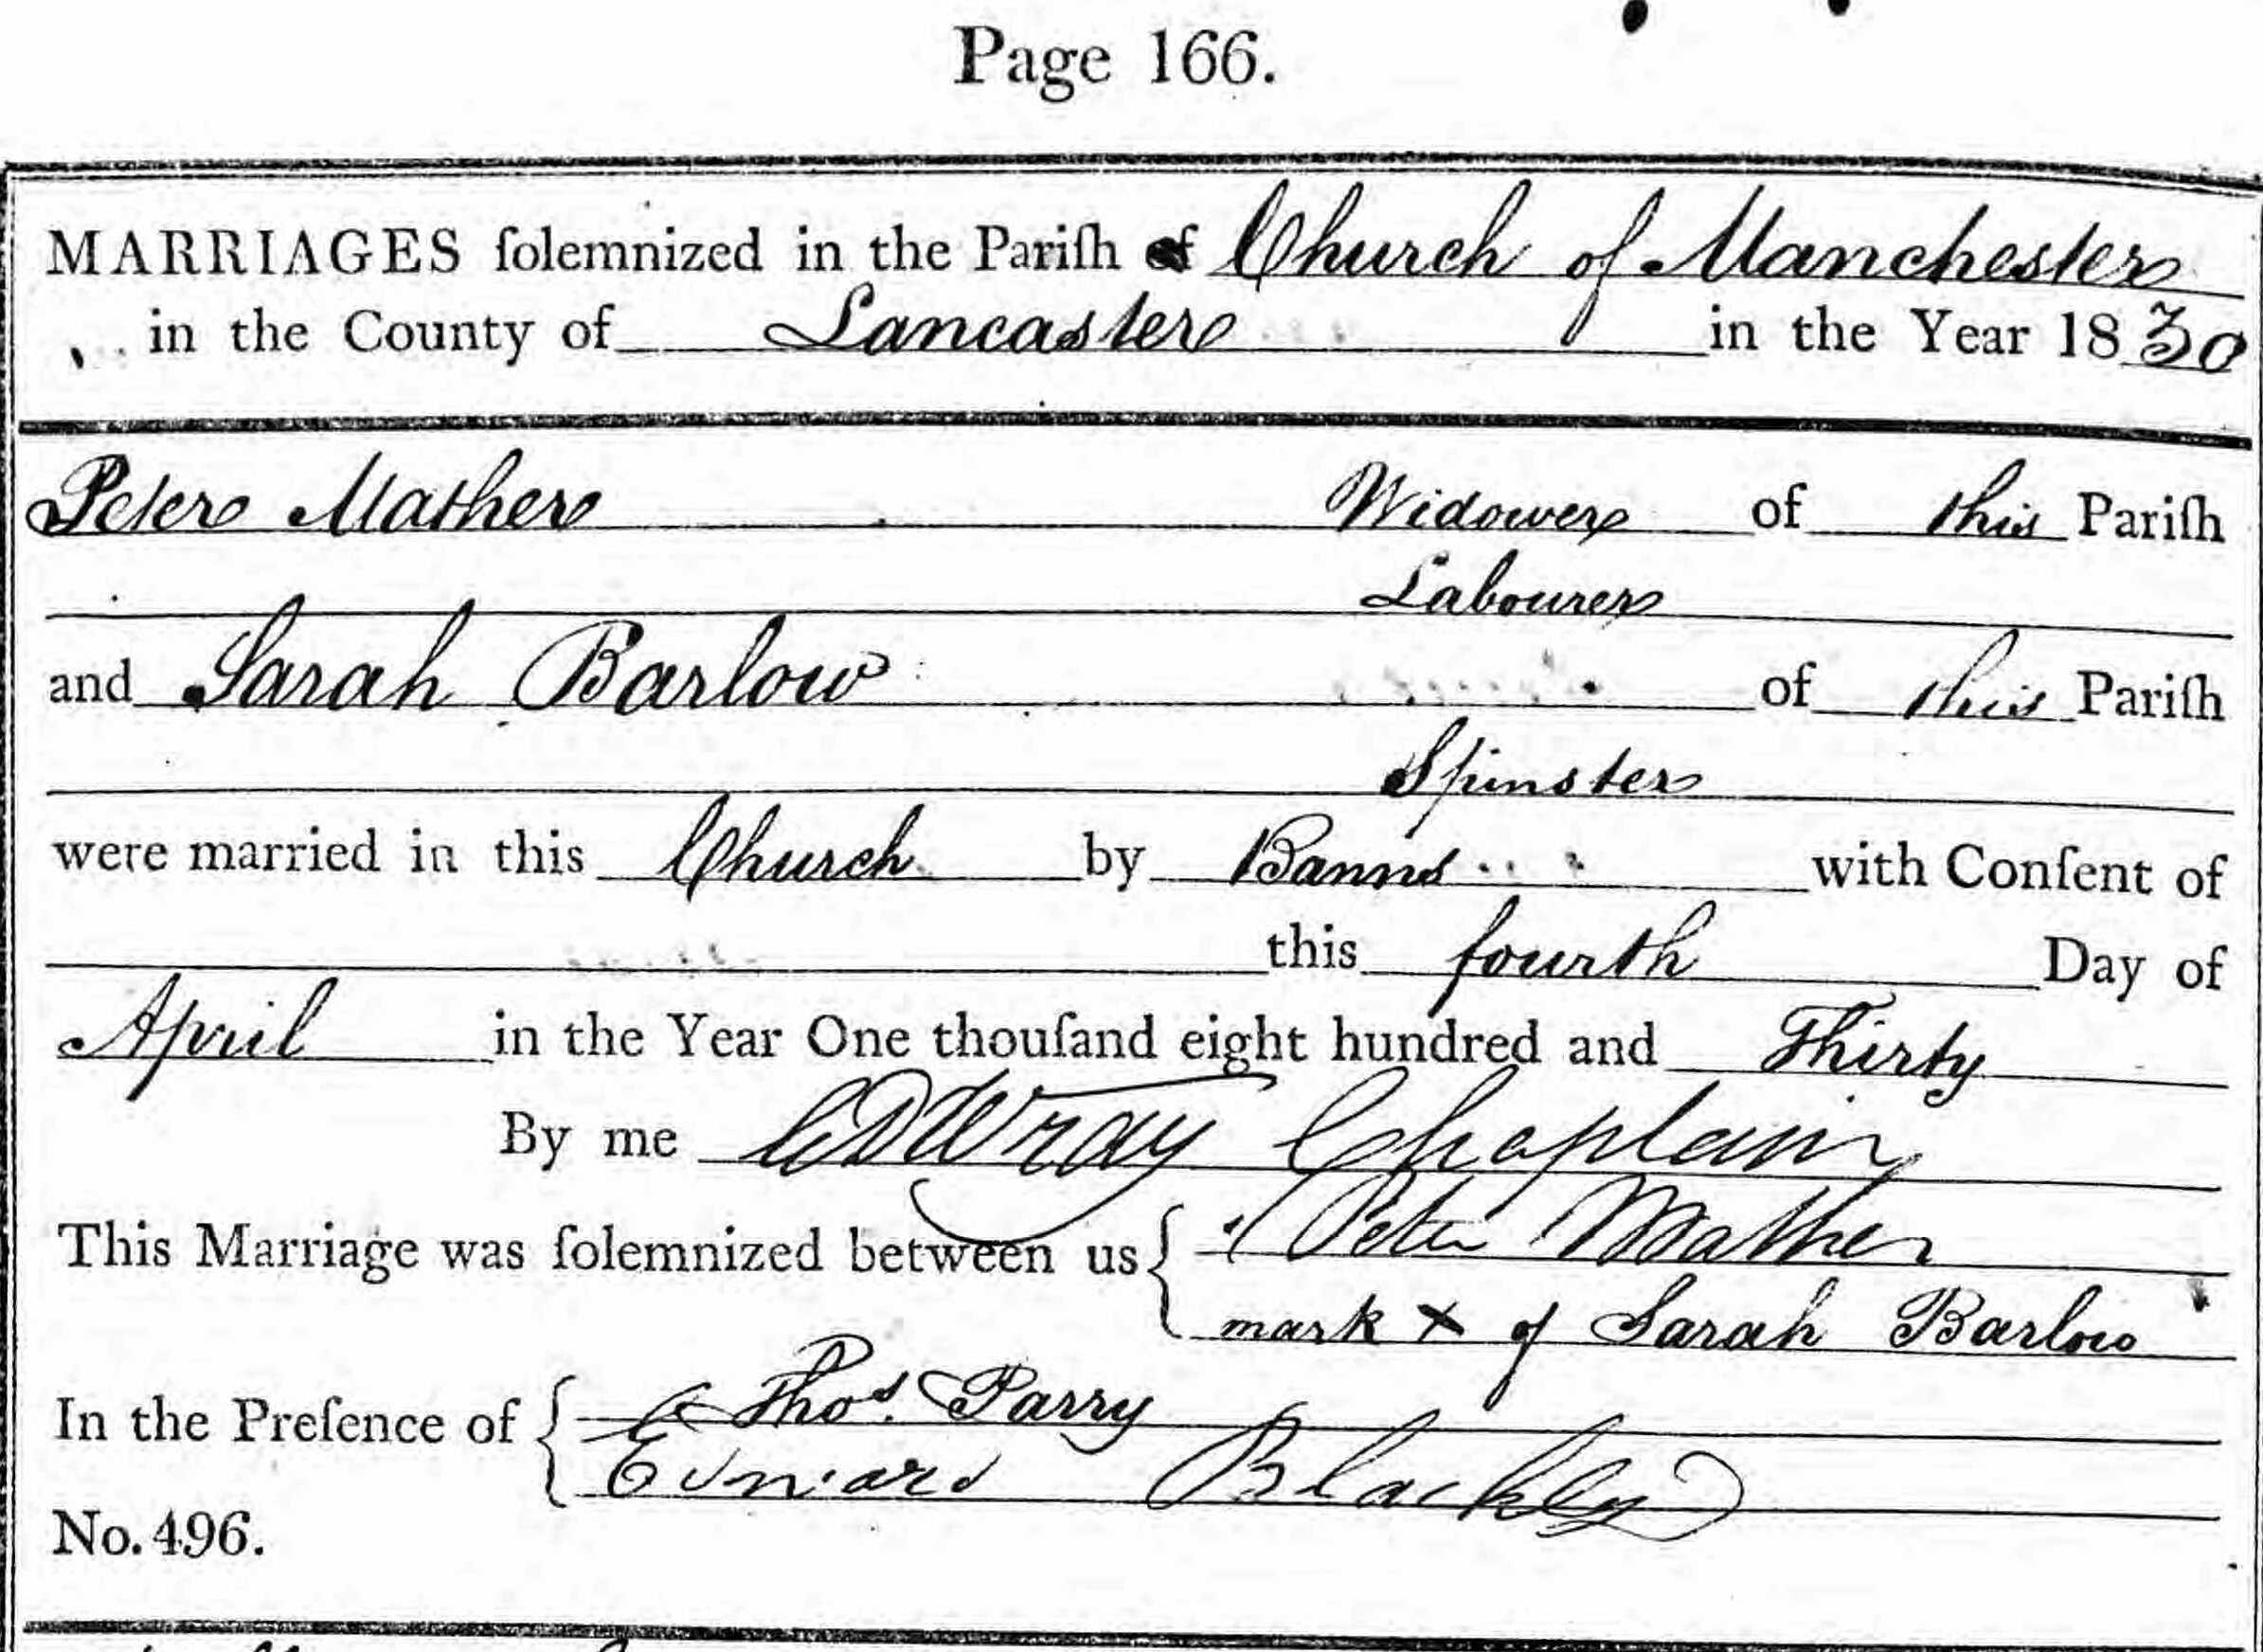 Page 166.
MARRIAGES ſolemnized in the Pariſh of Church of Manchester
in the County of Lancaster in the Year 1830
Peter Mather Widower of this Pariſh
Labourer
and Sarah Barlow of this Pariſh
Spinster
were married in this Church by Banns with Conſent of
this fourth Day of
April in the Year One thouſand eight hundred and Thirty
By me CDWray Chaplain
This Marriage was ſolemnized between us Peter Mather
mark X of Sarah Barlow
In the Preſence of Thos. Parry
Edward Blackly
No. 496.